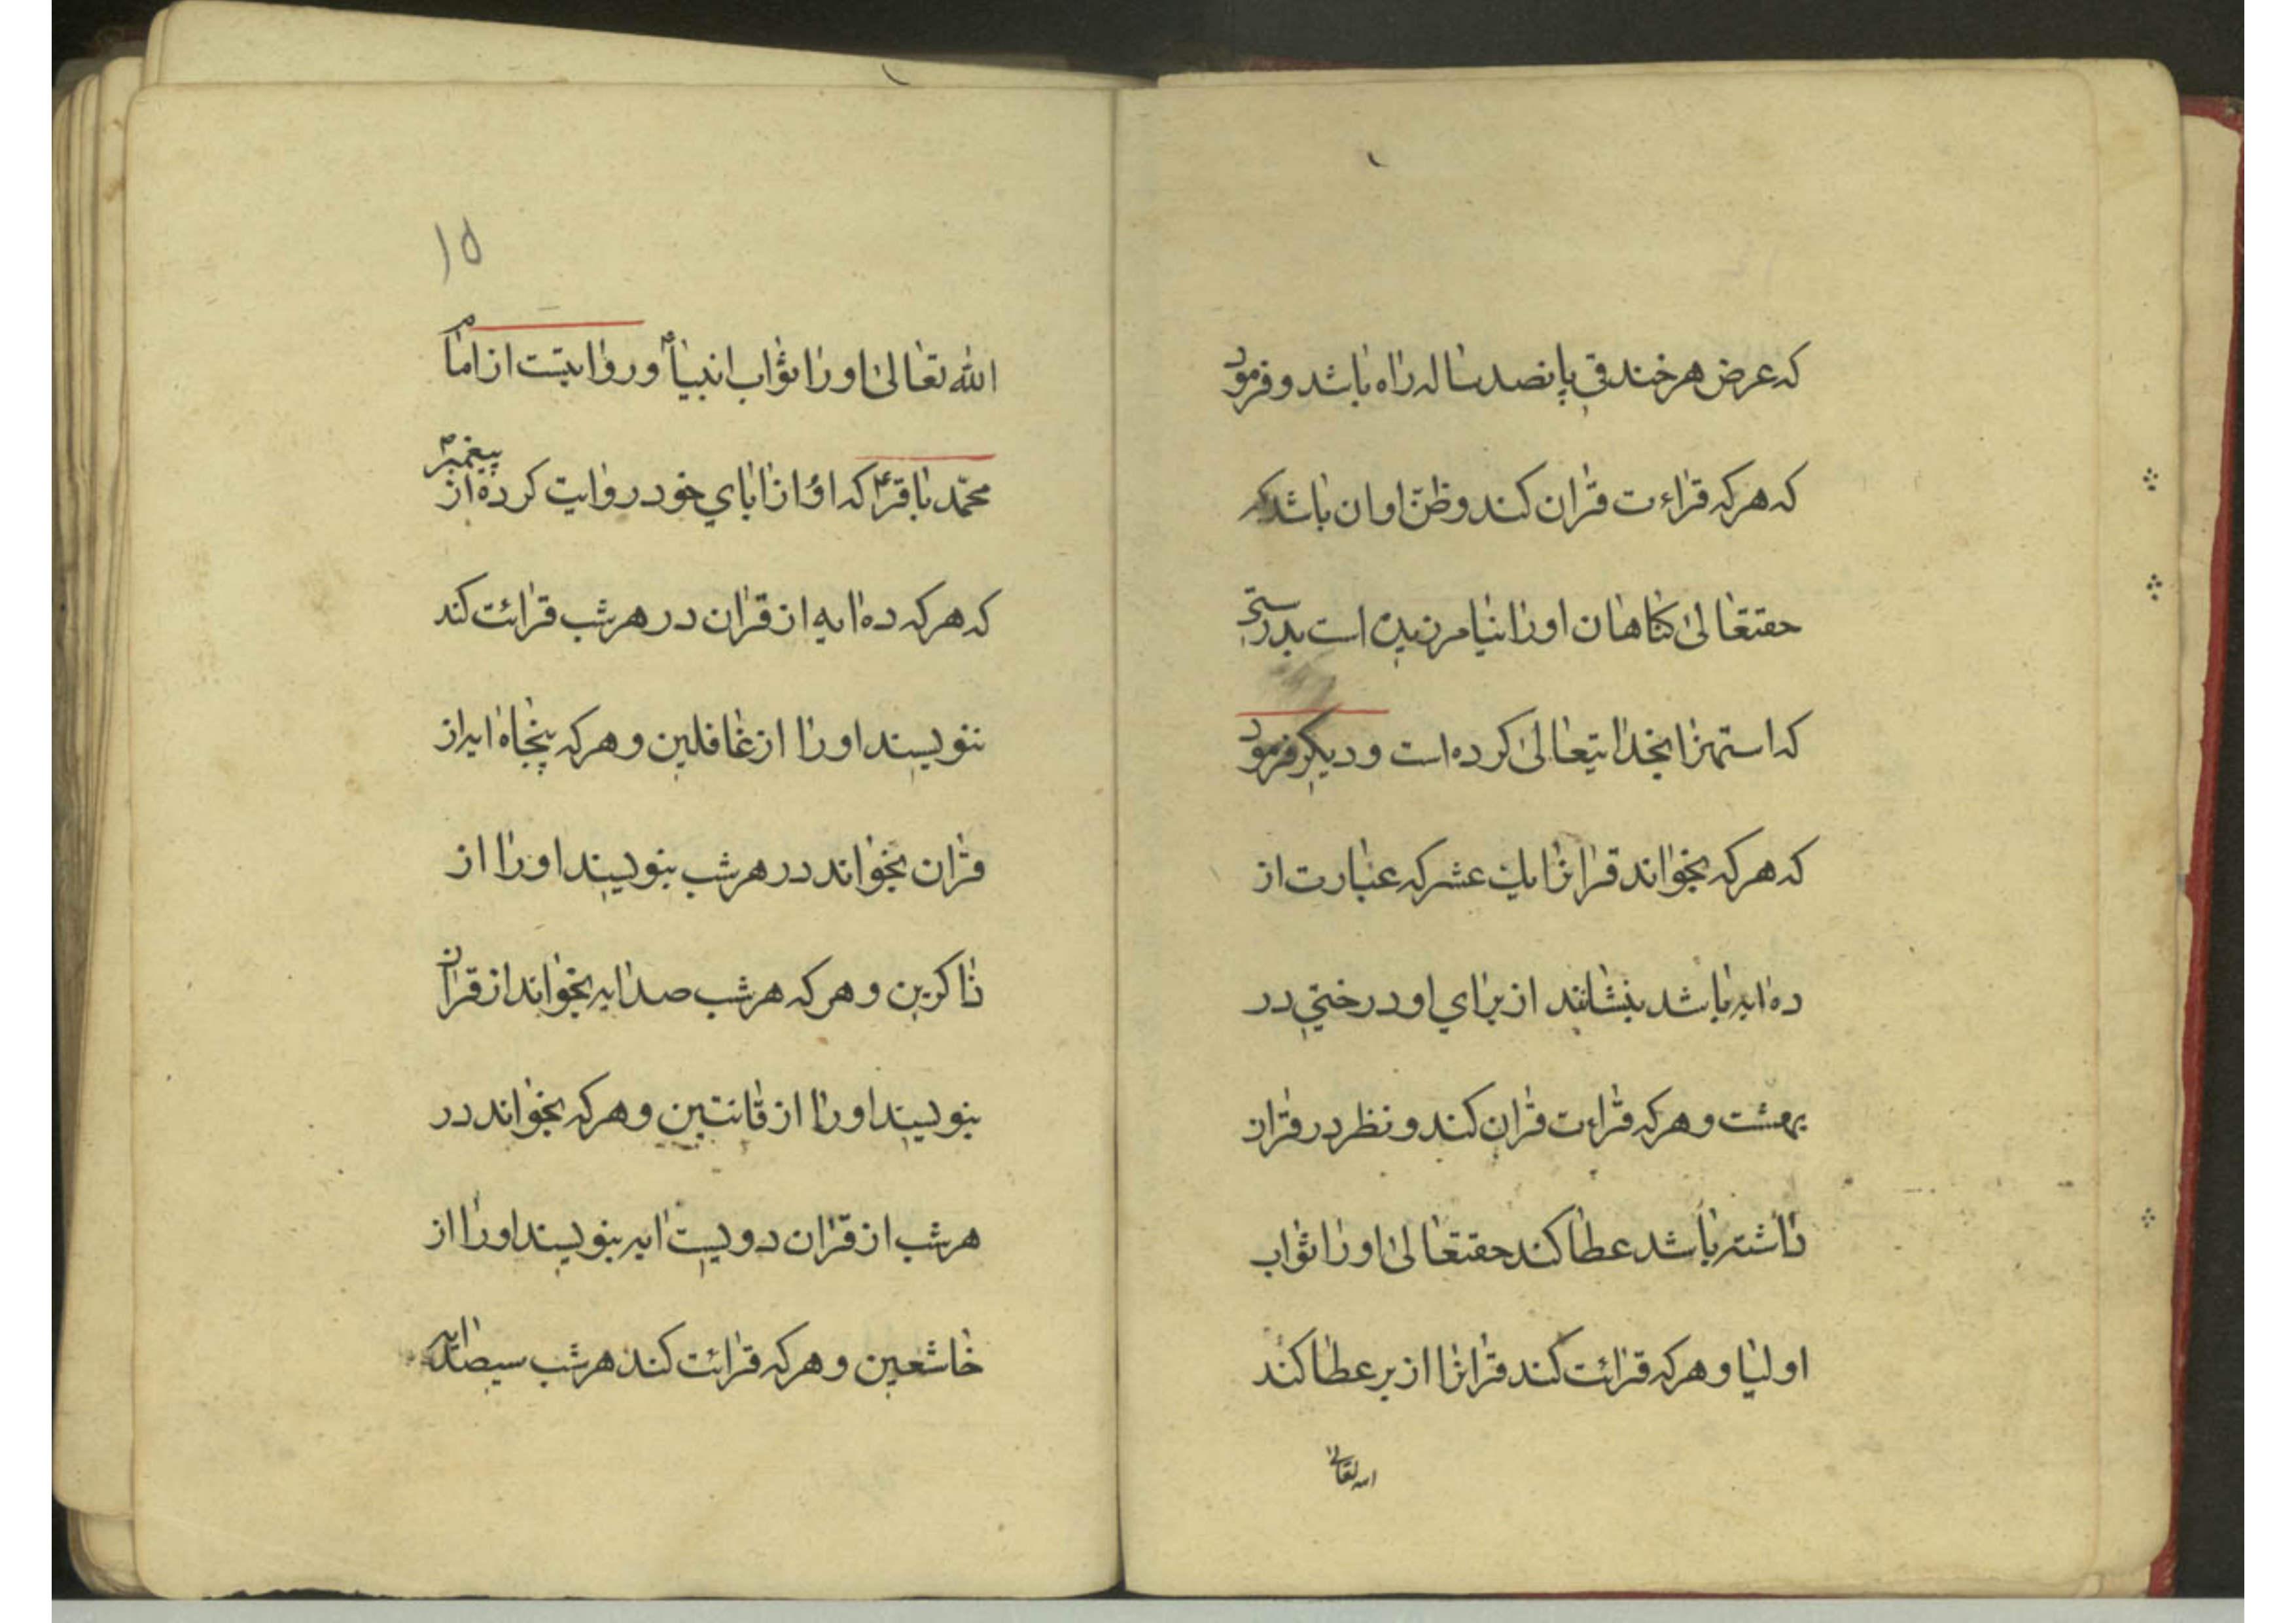 که عرض هر خندقی پانصد ساله راه باشد و فرمود
که هرکه قراءت قران کند و ظنّ او ان باشد که
حقتعالی کناهان او را نیامرزیده است بدرستی
که استهزا بخدایتعالی کرده است و دیکر فرمود
که هرکه بخواند قرانرا یک عشر که عبارت از
ده ایه باشد بنشانند از برای او درختی در
بهشت و هرکه قراءت قران کند و نظر در قران
داشته باشد عطا کند حقتعالی او را ثواب
اولیا و هرکه قرائت کند قرانرا از بر عطا کند
الله تعالی
۱۵
الله تعالی او را ثواب انبیا و روایتست از امام
محمّد باقرع که او از ابای خود روایت کرده از پیغمبرص
که هرکه ده ایه از قران در هر شب قرائت کند
ننویسند او را از غافلین و هرکه پنجاه ایه از
قران بخواند در هر شب بنویسند او را از
ذاکرین و هرکه هر شب صد ایه بخواند از قران
بنویسند او را از قانتین و هرکه بخواند در
هر شب از قران دویست ایه بنویسند او را از
خاشعین و هرکه قرائت کند هر شب سیصد ایه